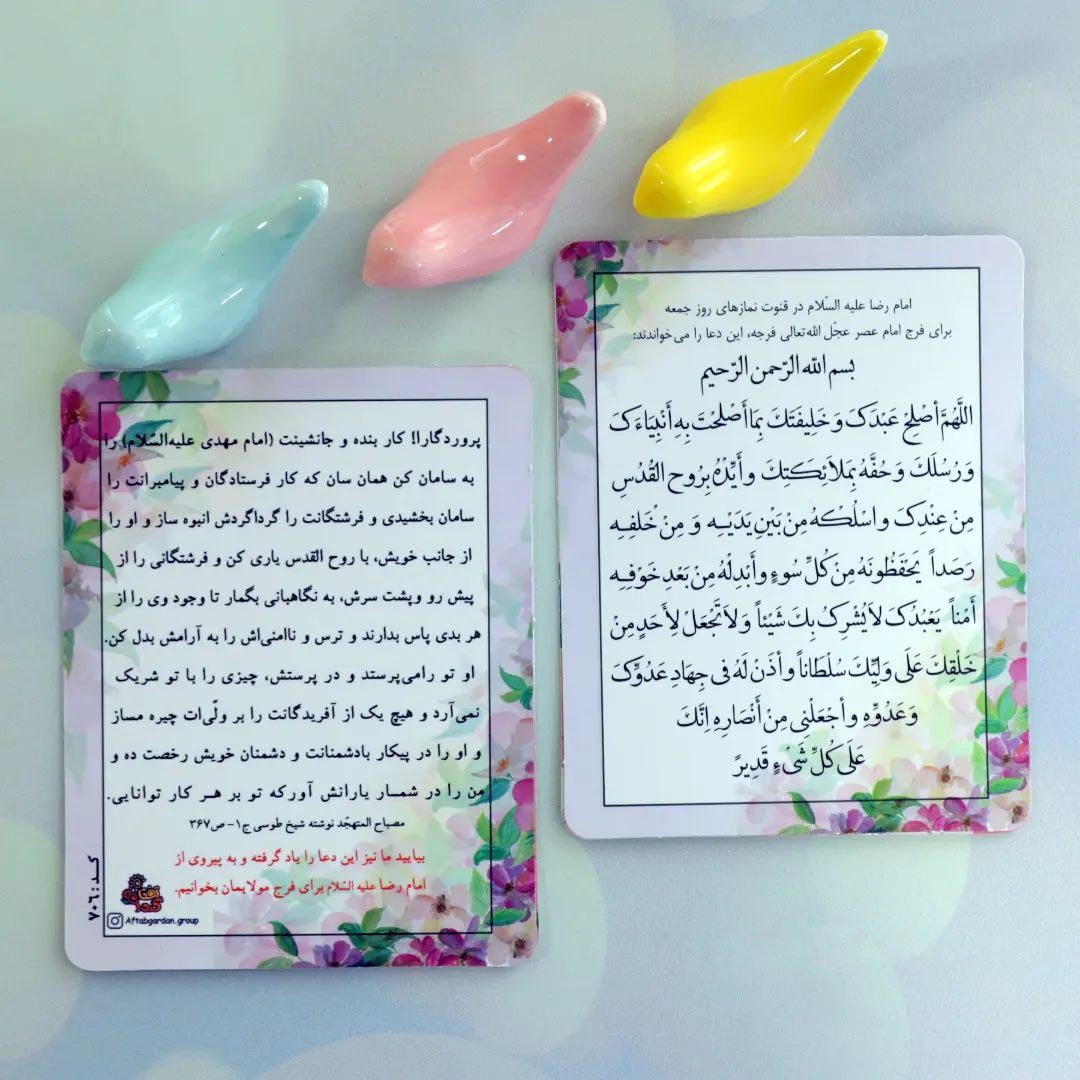 امام رضا علیه السّلام در قنوت نمازهای روز جمعه
برای فرج امام عصر عجّل الله‌تعالی فرجه، این دعا را می‌خواندند:
بسم الله الرّحمن الرّحیم
اللَّهُمَّ أَصْلِحْ عَبْدَكَ وَ خَلِیفَتَكَ بِمَا أَصْلَحْتَ بِهِ أَنْبِیَاءَكَ
وَ رُسُلَكَ وَ حُفَّهُ بِمَلاَئِكَتِكَ وَ أَیِّدْهُ بِرُوحِ الْقُدُسِ
مِنْ عِنْدِكَ وَ اسْلُكْهُ مِنْ بَیْنِ یَدَیْهِ وَ مِنْ خَلْفِهِ
رَصَداً یَحْفَظُونَهُ مِنْ كُلِّ سُوءٍ وَ أَبْدِلْهُ مِنْ بَعْدِ خَوْفِهِ
أَمْناً یَعْبُدُكَ لاَ یُشْرِكُ بِكَ شَیْئاً وَ لاَ تَجْعَلْ لِأَحَدٍ مِنْ
خَلْقِكَ عَلَى وَلِیِّكَ سُلْطَاناً وَ أْذَنْ لَهُ فِی جِهَادِ عَدُوِّكَ
وَ عَدُوِّهِ وَ اجْعَلْنِی مِنْ أَنْصَارِهِ إِنَّكَ
عَلَى كُلِّ شَیْءٍ قَدِیرٌ
پروردگارا! کار بنده و جانشینت (امام مهدی علیه‌السّلام) را
به سامان کن همان سان که کار فرستادگان و پیامبرانت را
سامان بخشیدی و فرشتگانت را گرداگردش انبوه ساز و او را
از جانب خویش، با روح القدس یاری کن و فرشتگانی را از
پیش رو وپشت سرش، به نگاهبانی بگمار تا وجود وی را از
هر بدی پاس بدارند و ترس و ناامنی‌اش را به آرامش بدل کن.
او تو رامی‌پرستد و در پرستش، چیزی را با تو شریک
نمی‌آرد و هیچ یک از آفریدگانت را بر ولّی‌ات چیره مساز
و او را در پیکار بادشمنانت و دشمنان خویش رخصت ده و
من را در شمار یارانش آورکه تو بر هر کار توانایی.
مصباح المتهجّد نوشته شیخ طوسی ج۱- ص۳۶۷
بیایید ما نیز این دعا را یاد گرفته و به پیروی از
امام رضا علیه السّلام برای فرج مولایمان بخوانیم.
آفتاب
گردان
Aftabgardan.group
کد: ۷۰۶